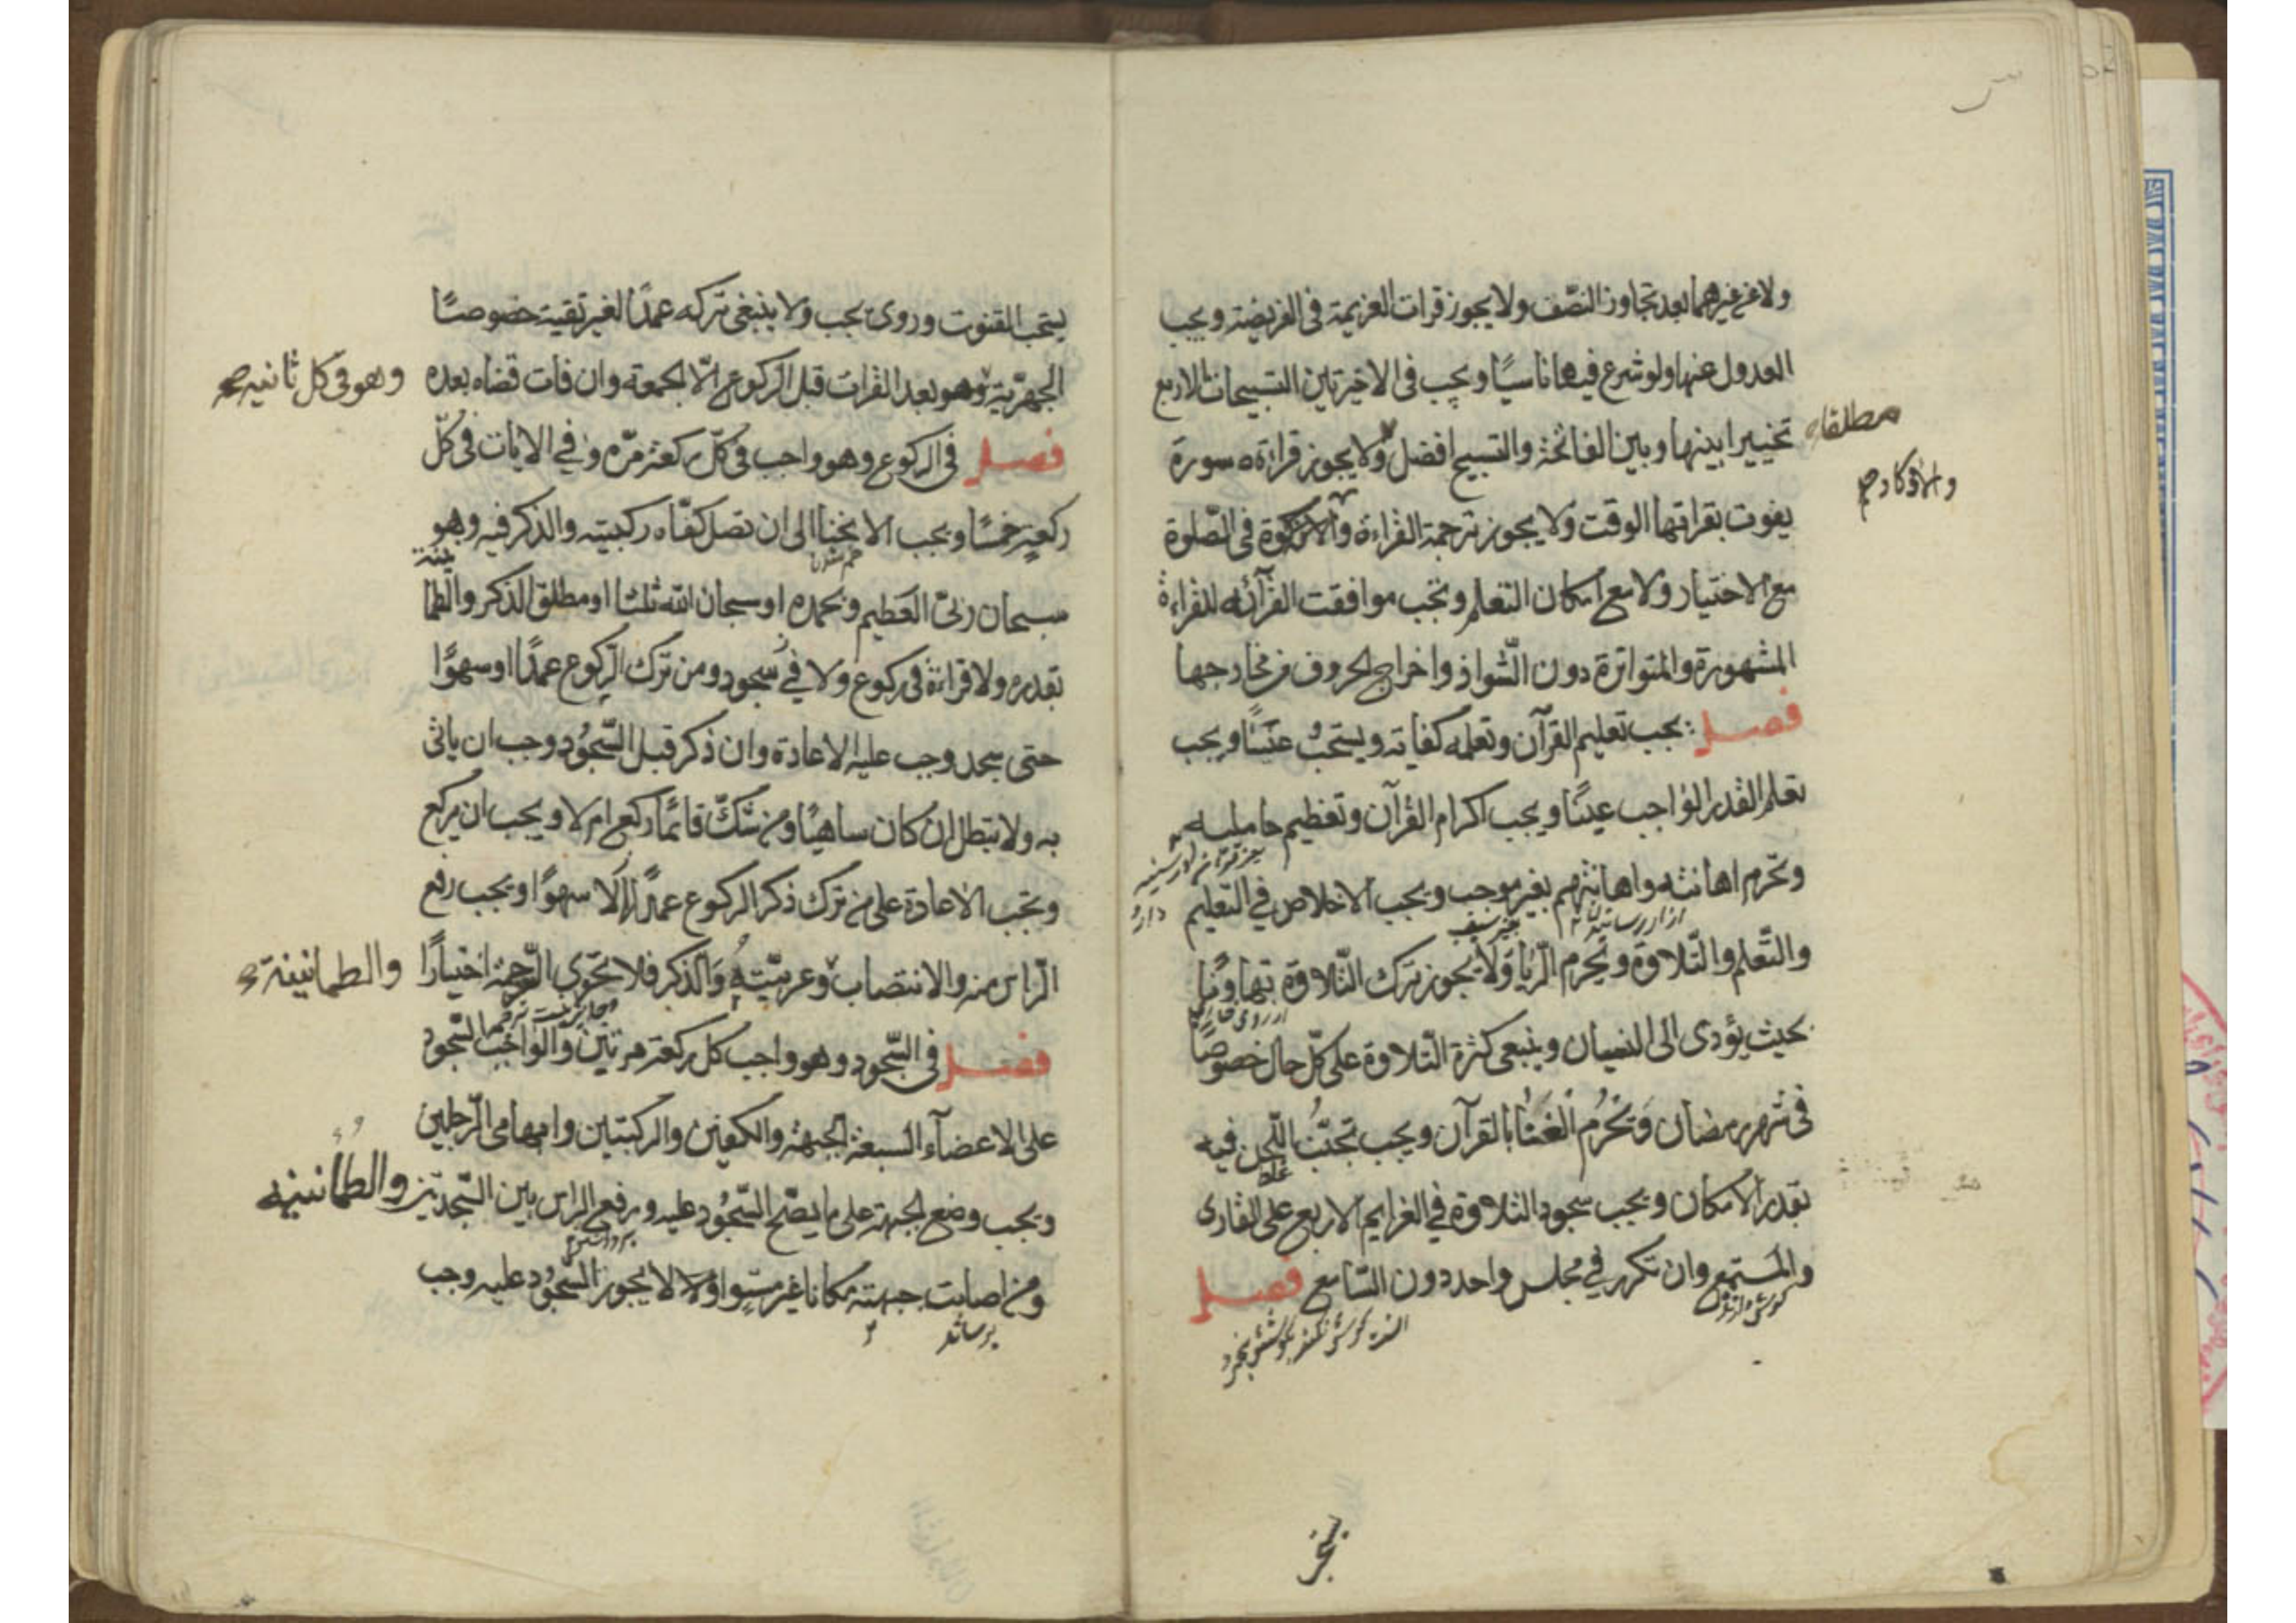 ولا عن غيرهما بعد تجاوز النصّف ولا يجوز قرات العزيمة فى الفريضة ويجب
العدول عنها ولو شرع فيها ناسيًا ويجب فى الاخيرتين التسبيحات الاربع
مطلقا
تخييرا بينها وبين الفاتحة والتسبيح افضل ولا يجوز قراءة سورة
يفوت بقراتها الوقت ولا يجوز ترجمة القراءة فى الصّلوة
مع الاختيار ولا مع امكان التعلم وتجب موافقت القرآئه للقراءة
المشهورة والمتواترة دون الشّواذ واخراج الحروف من مخارجها
فصل يجب تعليم القرآن وتعلمه كفاته ويستحبُ عينًا ويجب
تعلم القدر الواجب عينًا ويجب اكرام القرآن وتعظيم حامليه
وتحرم اهانته واهانتهم بغير موجب ويجب الاخلاص في التعليم
والتّعلم والتّلاوة وتحرم الرّيا ولا يجوز ترك التّلاوة تهاونًا
بحيث يؤدى الى النسيان وينبغى كثرة التّلاوة على كلّ حال خصوصًا
فى شهر رمضان وتحرُم الغنا بالقرآن ويجب تجنّبُ اللّحن فيه
غلط
بقدر الامكان ويجب سجود التلاوة في الغرايم الاربع على القارى
والمستمع وان تكرر في مجلس واحد دون السّامع فصل
يستحب القنوت وروى يجب ولا ينبغى تركه عمدًا لغير تقيته خصوصًا
الجهرّية وهو بعد القرات قبل الركوع الّا الجمعة وان فات قضاه بعده
وهو فى كل ثانيه
فصل فى الركوع وهو واجب فى كلّ ركعة مرّه وفي الايات فى كلّ
ركعةٍ خمسًا ويجب الانحنا الى ان تصل كفّاه ركبيته والذكر فيه وهو
خم شدن
سبحان ربىّ العظيم وبحمده او سبحان الله ثلثا او مطلق الذكر والطما
نينة
بقدره ولا قراءة فى ركوع ولا في سجود ومن ترك الرّكوع عمدًا او سهوًا
حتى سجد وجب عليه الاعادة وان ذكر قبل السّجُود وجب ان ياتى
به ولا تبطل ان كان ساهيًا ومن شكّ قائمًا ركع ام لا ويجب ان يركع
وتجب الاعادة على من ترك ذكر الركوع عمدًا لا سهوًا ويجب رفع
الرّاس منه والانتصاب وعربيّته والذكر فلا تجوى الترجمة اختيارًا
والطمانينة
فصل فى السّجود وهو واجب كل ركعة مرتين والواجب السّجود
على الاعضآء السبعة الجبهة والكفين والركبتين وابهامى الرّجلين
ويجب وضع الجبهة على ما يصّح السّجُود عليه ورفع الراس بين السّجدتين
والطمأنينه
ومن اصابت جبهته مكانا غير مستٍوا ولا لا يجوز السّجُود عليه وجب
برساند